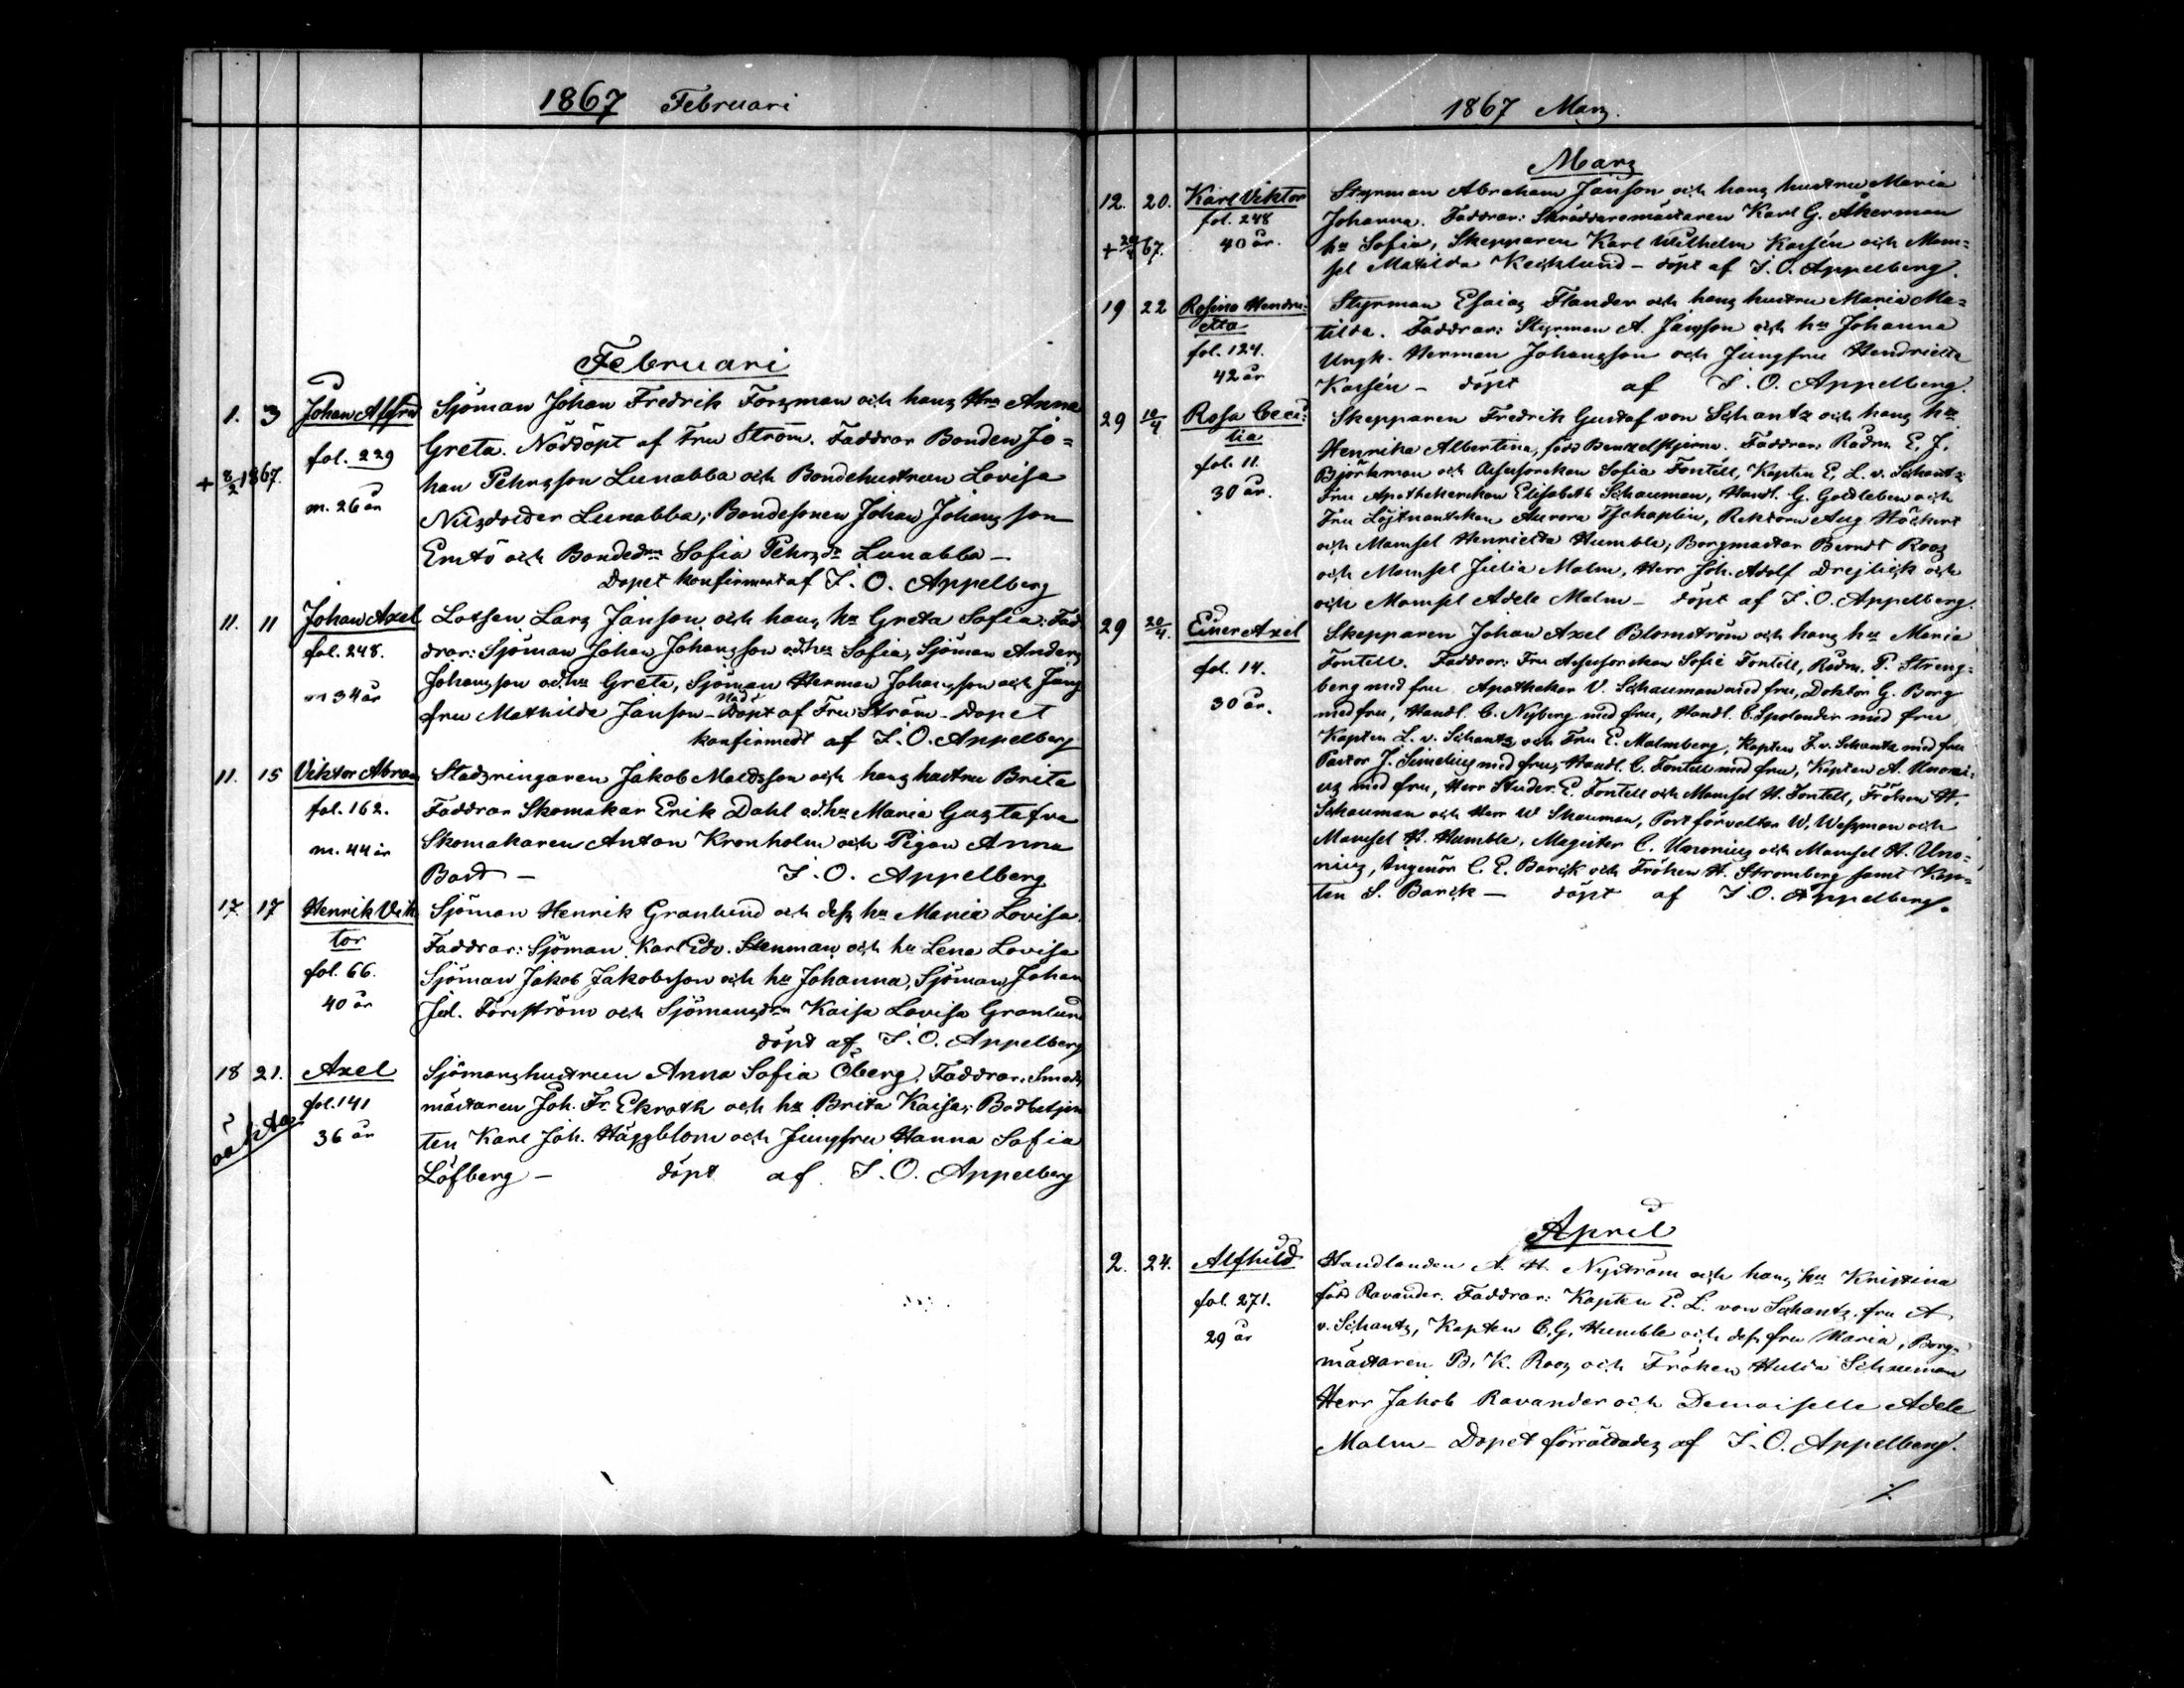 1867 Februari
Februari
1. 3 Johan Alfred Sjöman Johan Fredrik Forsman och hans Hru Anna
fol. 229 Greta. Nöddöpt af Fru Ström. Faddrar Bonden Jo=
+ 8/2 1867. han Pehrsson Lunabba och Bondehustrun Lovisa
m. 26 år Lunabba; Bondesonen Johan Johansson
Emtö och Bondedrn Sofia Pehrsdr Lunabba —
Dopet konfirmert af I. O. Appelberg
11. 11 Johan Axel Lotsen Lars Janson och hans hu Greta Sofia. Fad
fol. 248. drar: Sjöman Johan Johansson o.d.hu Sofia, Sjöman Anders
Johansson o.d.hu Greta, Sjöman Herman Johansson och Jung
m 34 år fru Mathilda Janson - Nöddöpt af Fru Ström - Dopet
konfirmedt af I. O. Appelberg
11. 15 Viktor Abram Stadsringaren Jakob Matdsson och hans hustru Brita
fol. 162. Faddrar Skomakar Erik Dahl o.d.hu Maria Gustafva
m. 44 år Skomakaren Anton Kronholm och Pigan Anna
Bord — I. O. Appelberg
17. 17 Henrik Vik Sjöman Henrik Granlund och dess hu Maria Lovisa.
tor Faddrar: Sjöman Karl Edv. Stenman och hu Lena Lovisa
fol. 66. Sjöman Jakob Jakobsson och hu Johanna, Sjöman Johan
40 år Fornström och Sjömansdrn Kaisa Lovisa Granlund
döpt af I. O. Appelberg
18 21. Axel Sjömanshustrun Anna Sofia Öberg. Faddrar: Smeds
fol. 141 mästaren Joh. Fr. Ekroth och hu Brita Kaisa; Bodbetjen
oäkta 36 år ten Karl Joh. Häggblom och Jungfru Hanna Sofia
Löfberg — döpt af I. O. Appelberg
1867 Mars.
Mars
12. 20. Karl Viktor Styrman Abraham Janson och hans hustru Maria
fol. 248 Johanna. Faddrar: Skräddaremästaren Karl G. Åkerman
67. 40 år. hu Sofia, Skepparen Karl Wilhelm Korsén och Mam=
sel Matilda Kecklund - döpt af I. O. Appelberg.
19 22 Rosina Hendri= Styrman Esaias Flander och hans hustru Maria Ma=
etta tilda. Faddrar: Styrman A. Janson och hu Johanna
fol. 124. Ungk. Herman Johansson och Jungfru Hendrietta
42 år Korsén — döpt af I. O. Appelberg.
29 10/4 Rosa Ceci= Skepparen Fredrik Gustaf von Schantz och hans hu
lia Henrika Albertina, född Benzelstjerna. Faddrar: Rådm. E. J.
fol. 11. Björkman och Assessorskan Sofia Fontell, Kapten E. L. v. Schantz
30 år. Fru Apothekerskan Elisabeth Schauman, Handl. G. Goldleben och
Fru Löjtnantskan Aurora Tschaplin, Rektorn Aug Höckert
och Mamsel Henrietta Humble, Borgmästar Berndt Roos
och Mamsel Julia Malm, Herr Joh. Adolf Drejlick och
och Mamsel Adele Malm — döpt af I. O. Appelberg.
29 20/4. Einer Axel Skepparen Johan Axel Blomström och hans hu Maria
fol. 14. Fontell. Faddrar: Fru Assessorskan Sofie Fontell, Rådm. P. Streng=
berg med fru Apothekar V. Schauman med fru, Doktor G. Borg
30 år. med fru, Handl. C. Nyberg med fru, Handl. C. Spolander med fru
Kapten L. v. Schantz och Fru E. Malmberg, Kapten F. v. Schantz med fru
Pastor J. Simelius med fru, Handl. C. Fontell med fru, Kapten A. Unoni=
us med fru, Herr Studer. E. Fontell och Mamsel H. Fontell, Fröken H.
Schauman och Herr W Skauman, Postförvaltar W. Wessman och
Mamsel H. Humble, Magister C. Unonius och Mamsel H. Uno=
nius, Ingeniör C. E. Barck och Fröken H. Stromberg samt Kap=
ten S. Barck — döpt af I. O. Appelberg.
April
2. 24. Alfhild Handlanden A. H. Nyström och hans hu Kristina
fol. 271. född Ravander. Faddrar: Kapten E. L. von Schantz, fru A.
29 år v. Schantz, Kapten C. G. Humble och dess fru Maria, Borg=
mästaren B. K. Roos och Fröken Hulda Schauman
Herr Jakob Ravander och Demoiselle Adele
Malm — Dopet förrättades af I. O. Appelberg.